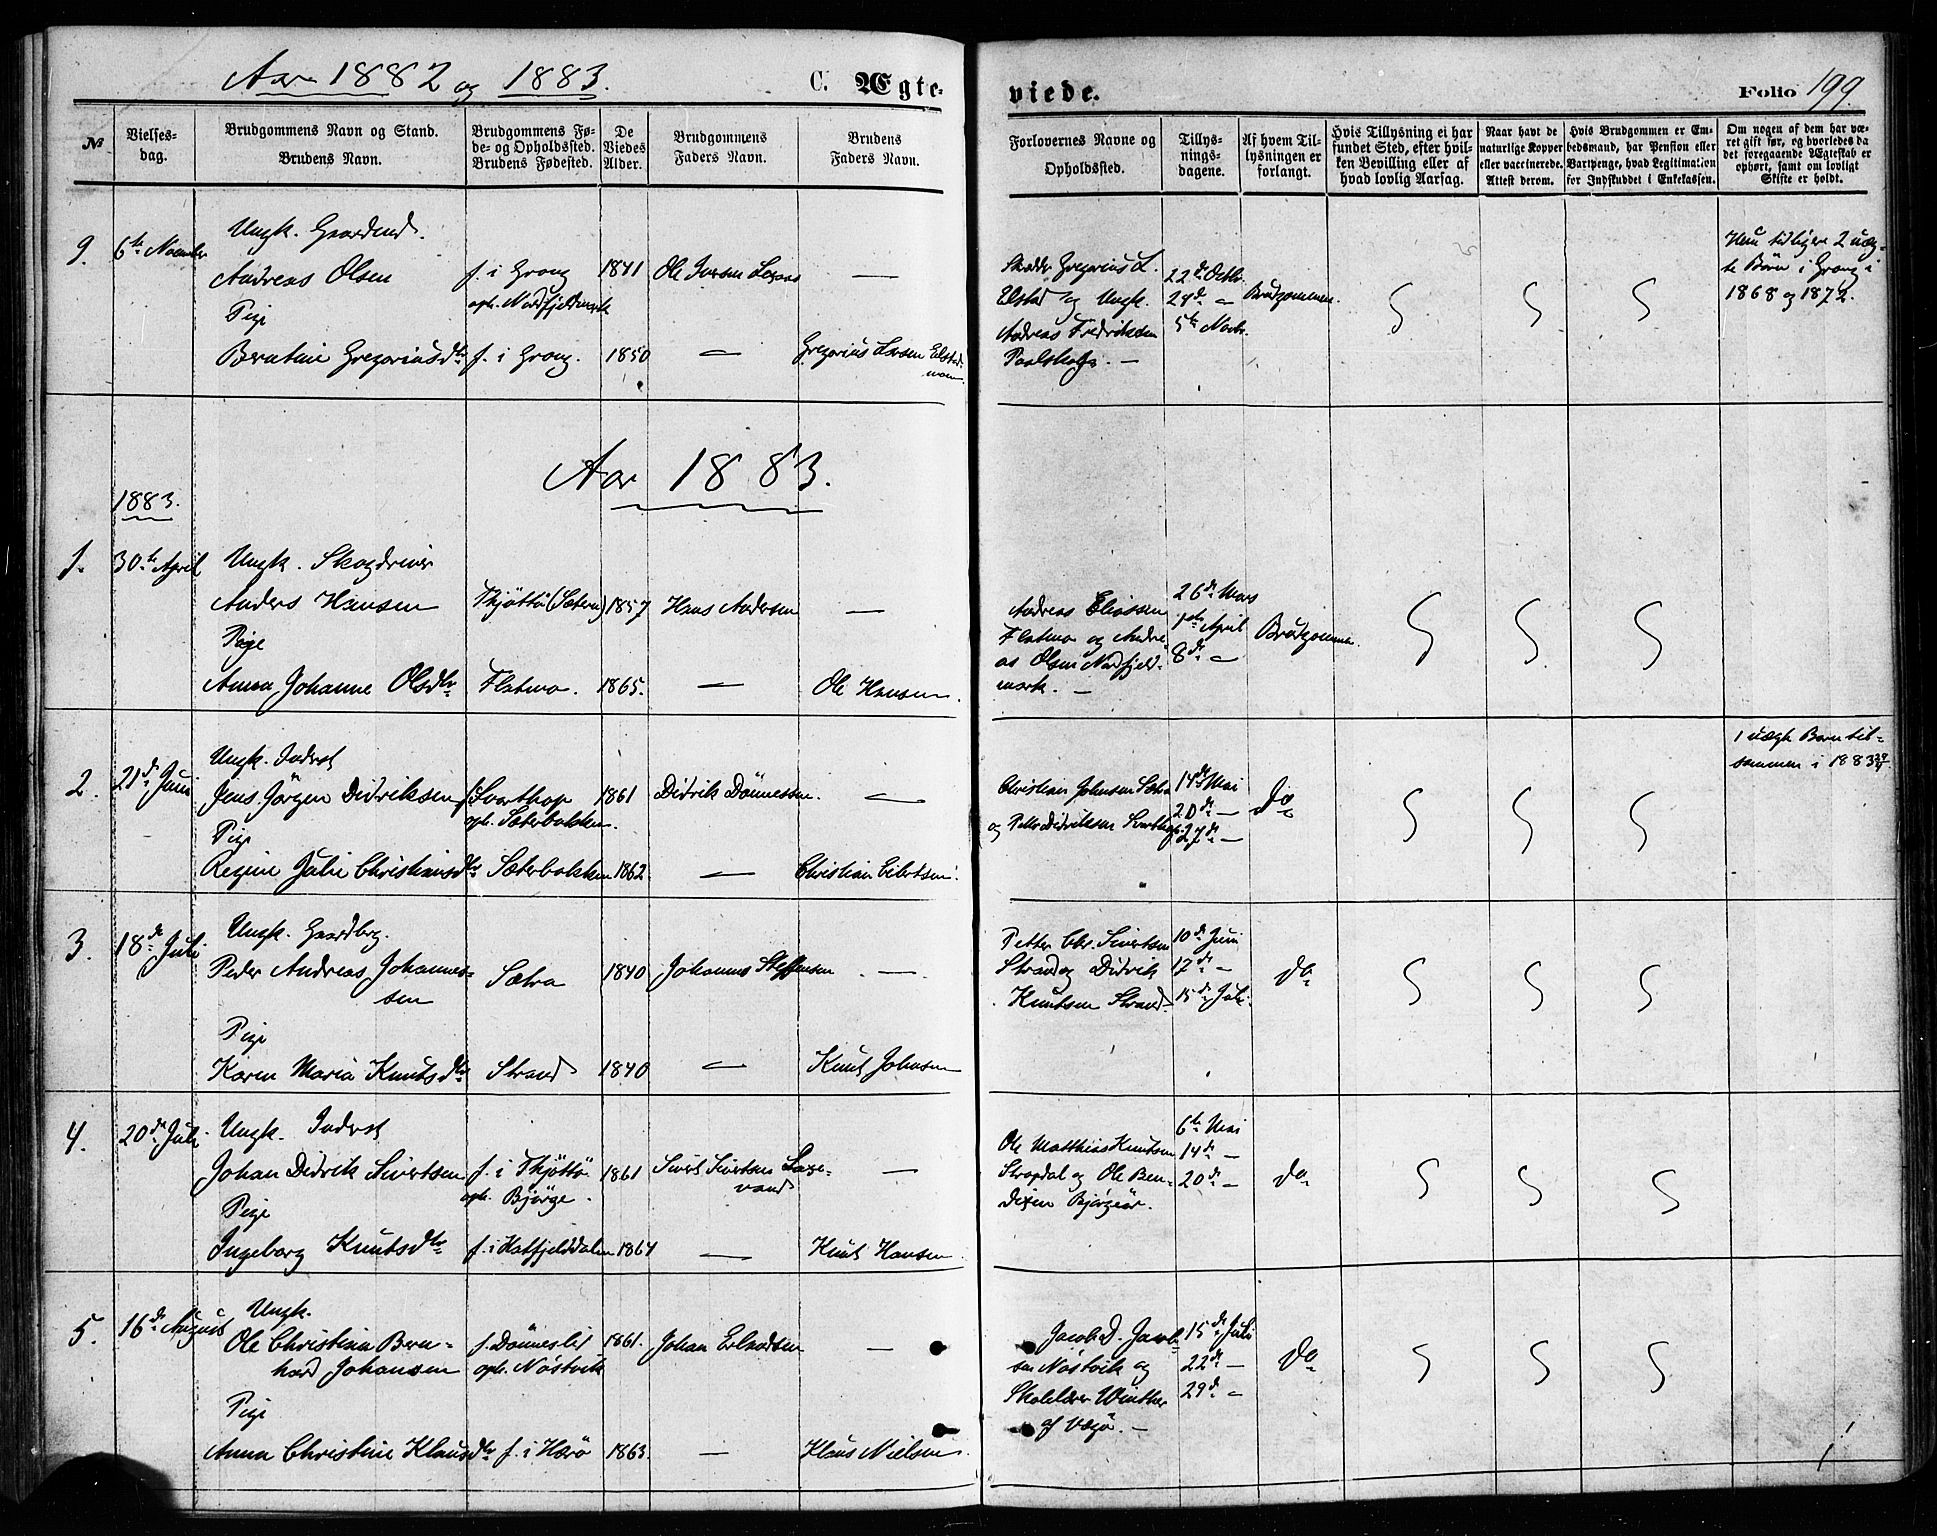 Aar 1882 og 1883.
C. Ægte-
viede.
Folio 199.
№
Vielses-
dag.
Brudgommens Navn og Stand.
Brudens Navn.
Brudgommens Fø-
de- og Opholdssted.
Brudens Fødested.
De
Viedes
Alder.
Brudgommens
Faders Navn.
Brudens
Faders Navn.
Forlovernes Navne og
Opholdssted.
Tillys-
nings-
dagene.
Af hvem Til-
lysningen er
forlangt.
Hvis Tillysning ei har
fundet Sted, efter hvil-
ken Bevilling eller af
hvad lovlig Aarsag.
Naar havt de
naturlige Kopper
eller vaccinerede.
Attest derom.
Hvis Brudgommen er Em-
bedsmand, har Pension eller
Vartpenge, hvad Legitimation
for Indskuddet i Enkekassen.
Om nogen af dem har væ-
ret gift før, og hvorledes da
det foregaaende Ægteskab er
ophørt, samt om lovligt
Skifte er holdt.
9.
6te November
Ungk. Gaardmd.
Andreas Olsen
Pige
Berntine Gregoriusdtr
f. i Grong
oph. Nordfjeldmark
f. i Grong.
1841
1850
Ole
—
—
Gregorius Larsen Elstad-
moen.
Gregorius L.
Elstad og Ungk.
Andreas Fredriksen
—
22de Octbr.
29de —
5te Novbr.
Brudgommen.
Hun tidligere 2 uæg-
te Børn i Grong i
1868 og 1872.
Aar 1883.
1883.
1.
30te April
Ungk. Skogdriver
Anders Hansen
Pige
Anna Johanne Olsdtr
Thjøttø (Sæteren)
Flatmo.
1857
1865.
Hans Andersen
—
—
Ole Hansen.
Andreas Eliassen
Flatmo og Andre-
as Olsen Nordfjeld-
mark. —
26de Mars
1ste April
8de —
Brudgommen.
2.
21de Juni
Ungk. Inderst
Jens Jörgen Didriksen
Pige
Regine Julie Christiansdtr
f. Svarthop
oph. Sæterbakken.
Sæterbakken
1861
1862.
Didrik Dönnessen.
—
—
Christian Eilertsen.
Christian Johnsen Sætra
og Petter Didriksen Svarthop.
14de Mai
20de —
27de —
Do
1 uægte Barn til-
sammen i 1883
3.
18de Juli
Ungk. Gaardbrg.
Peder Andreas Johannes-
sen
Pige
Karen Maria Knutsdtr
Sætra
Strand
1840
1840
Johannes Steffensen
—
—
Knut Johnsen
Petter Chr. Sivertsen
Strand og Didrik
Knutsen Strand
10de Juni
17de —
15de Juli.
do
4.
20de Juli
Ungk. Inderst
Johan Didrik Sivertsen
Pige
Ingeborg Knutsdtr
f. i Thjøttø
oph. Bjørge.
f. i Hatfjelddalen
1861
1864
Sivert Sivertsen Luxe-
vand
—
—
Knut Hansen
Ole Matthias Knutsen
Stropdal og Ole Ben-
dixen Bjørgeør.
6te Mai
14de —
20de —
do
5.
16de August
Ungk.
Ole Christian Bern-
hard Johansen
Pige
Anna Christine Klausdtr
f. Dönneslid
oph. Nöstvik
f. i Herö
1861.
1863.
Johan Erlandsen
—
—
Klaus Nielsen.
Jacob D. Jacob-
sen Nöstvik og
Skolelærer Winther
af Vægö. —
15de Juli
22de —
29de —
do